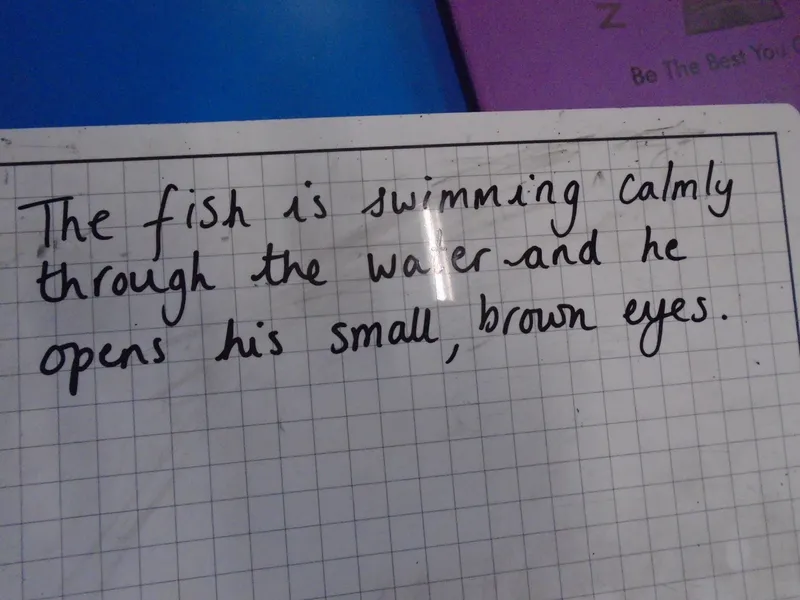 Z
Be The Best You C
The fish is swimming calmly
through the water and he
opens his small, brown eyes.